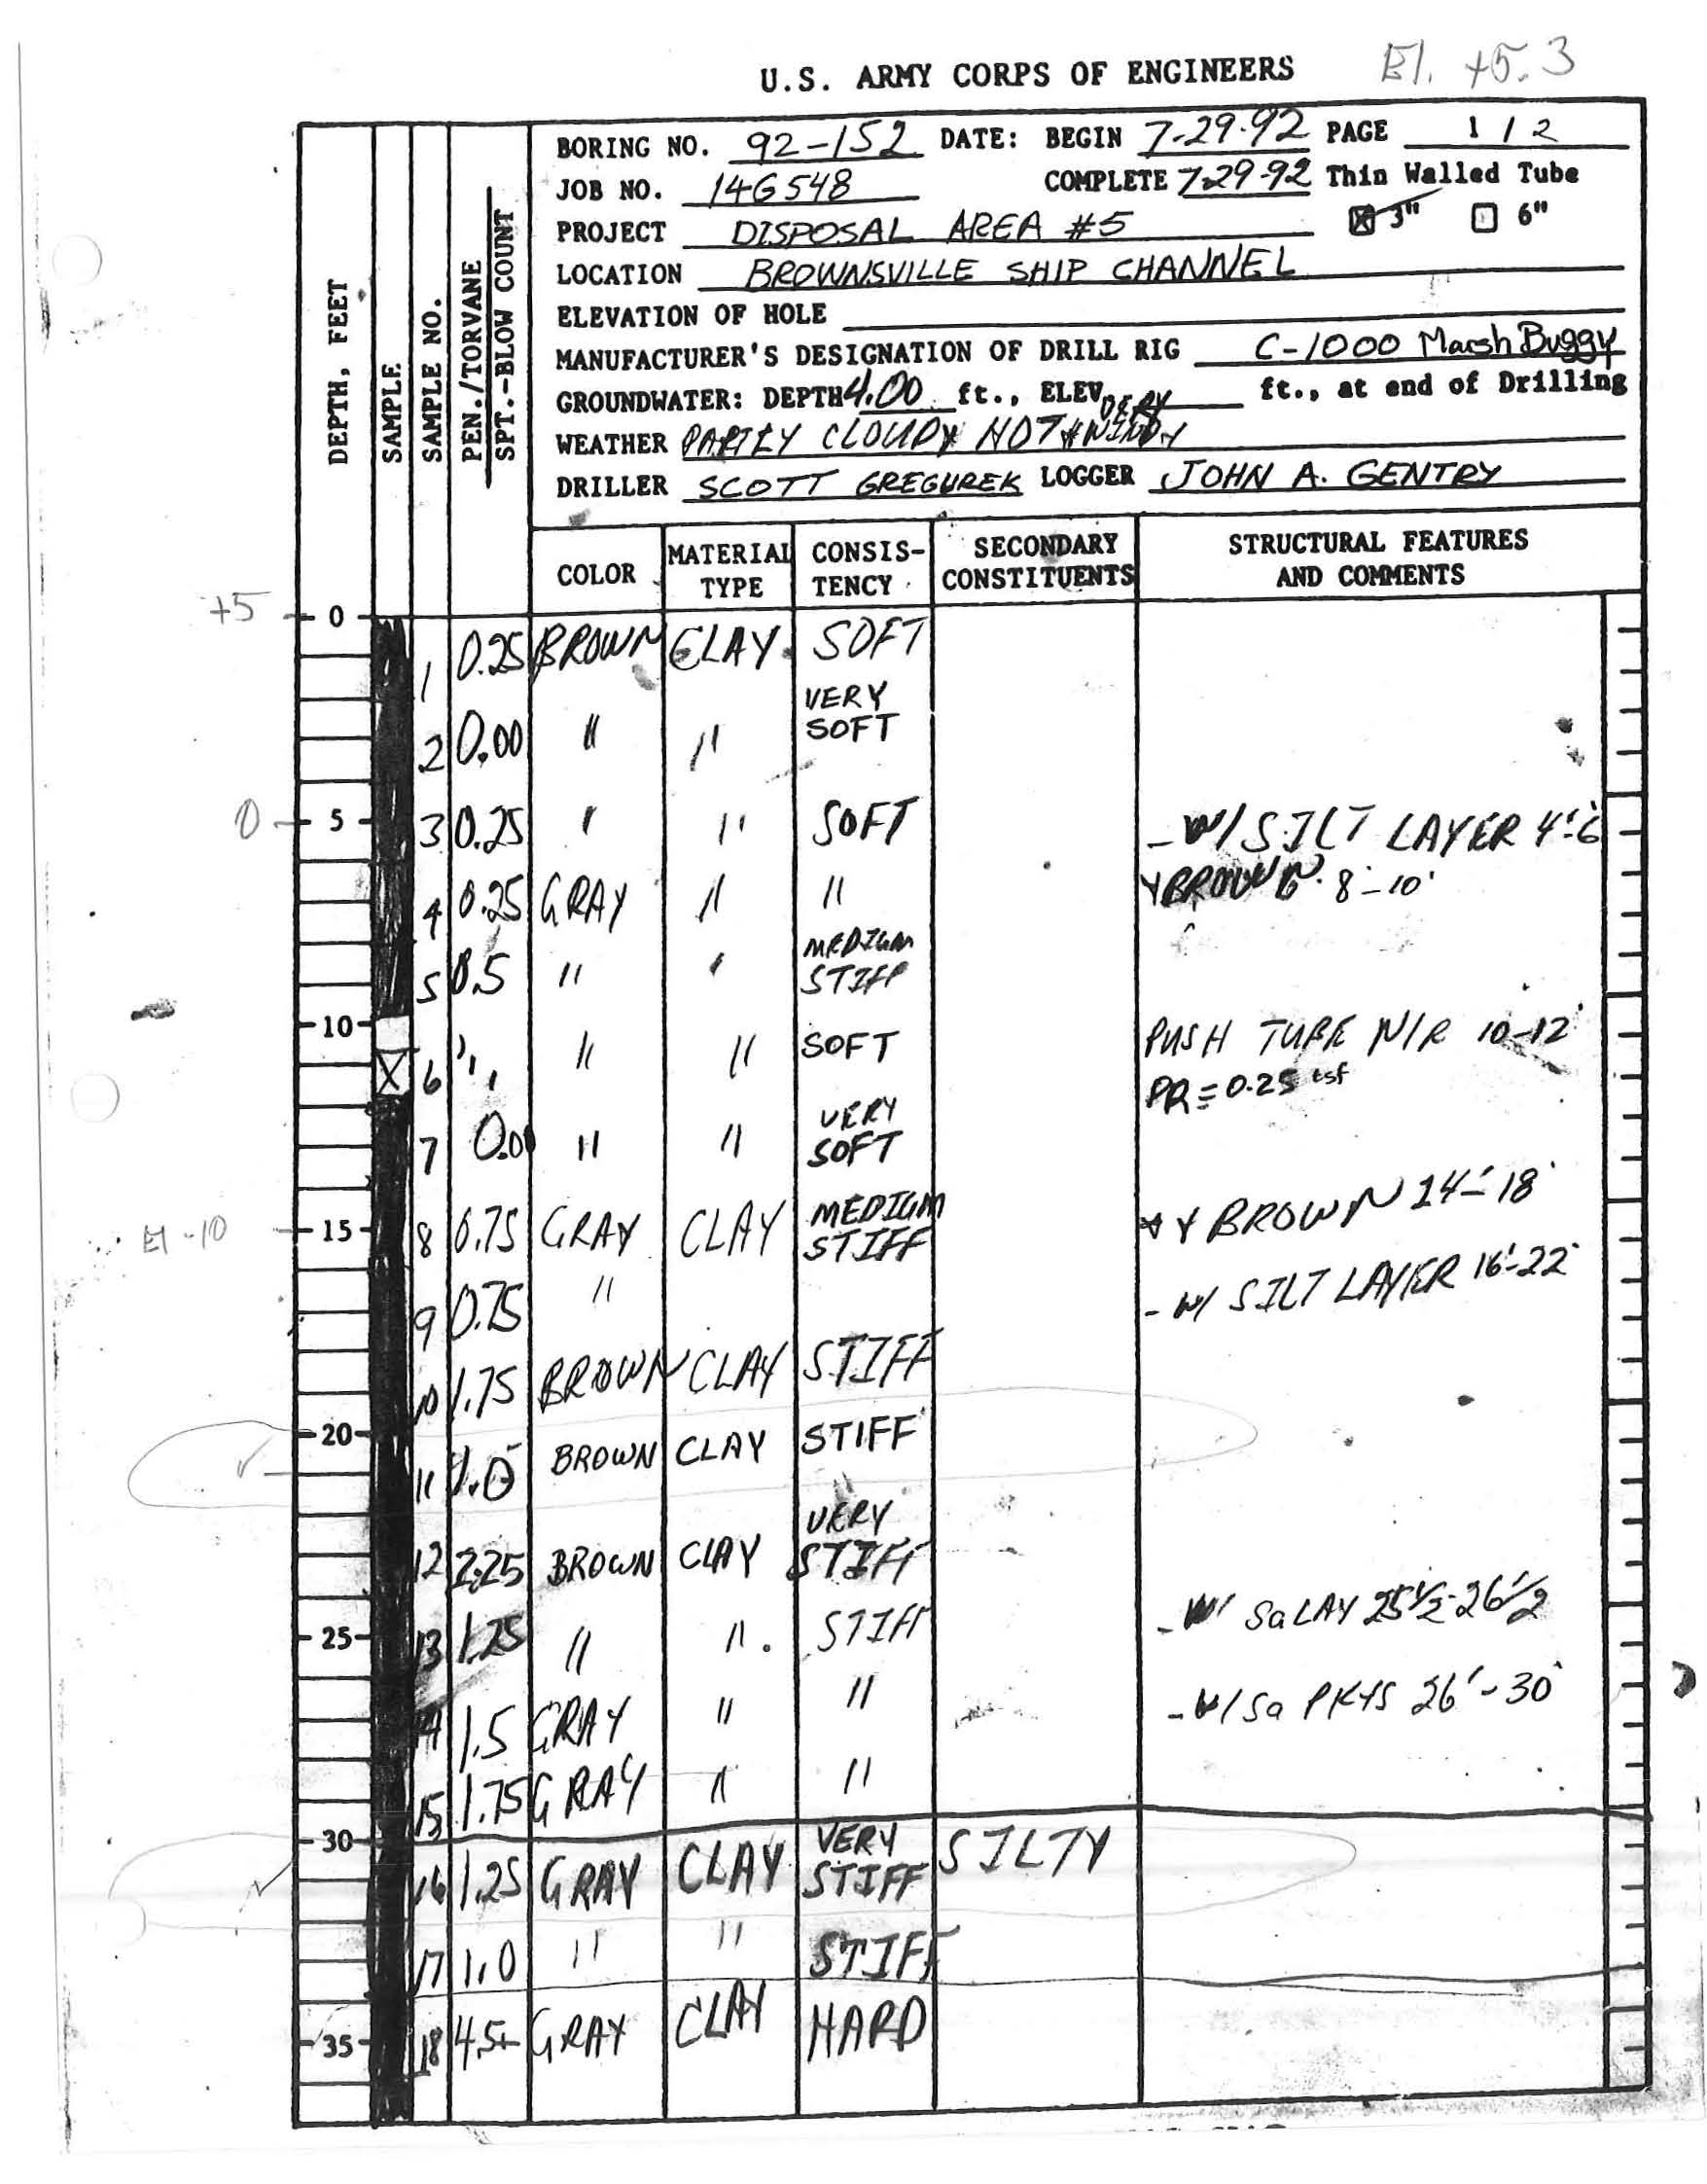 U.S. ARMY CORPS OF ENGINEERS El. +5.3
BORING NO. 92-152 DATE: BEGIN 7-29-92 PAGE 1 / 2
JOB NO. 14G548 COMPLETE 7-29-92 Thin Walled Tube
PROJECT DISPOSAL AREA #5 ☒ 3" ☐ 6"
LOCATION BROWNSVILLE SHIP CHANNEL
ELEVATION OF HOLE
MANUFACTURER'S DESIGNATION OF DRILL RIG C-1000 Marsh Buggy
GROUNDWATER: DEPTH 4.00 ft., ELEV. ft., at end of Drilling
WEATHER PARTLY CLOUDY HOT & VERY WINDY
DRILLER SCOTT GREGUREK LOGGER JOHN A. GENTRY
DEPTH, FEET
SAMPLE
SAMPLE NO.
PEN./TORVANE
SPT.-BLOW COUNT
COLOR MATERIAL TYPE CONSIS-TENCY SECONDARY CONSTITUENTS STRUCTURAL FEATURES AND COMMENTS
+5 0
1 0.25 BROWN CLAY SOFT
2 0.00 " " VERY SOFT
0 5 3 0.25 " " SOFT - W/ SILT LAYER 4'-6
4 0.25 GRAY " " Y BROWN 8'-10'
5 0.5 " " MEDIUM STIFF
10
6 " " " SOFT PUSH TUBE N/R 10-12'
PR = 0.25 tsf
7 0.0 " " VERY SOFT
El -10 15 8 0.75 GRAY CLAY MEDIUM STIFF Y BROWN 14'-18'
9 0.75 " - W/ SILT LAYER 16'-22'
10 1.75 BROWN CLAY STIFF
20
11 1.0 BROWN CLAY STIFF
12 2.25 BROWN CLAY VERY STIFF
25 13 1.25 " " STIFF - W/ Sa LAY 25½-26½
14 1.5 GRAY " " - W/ Sa PKTS 26'-30'
15 1.75 GRAY " "
30
16 1.25 GRAY CLAY VERY STIFF SILTY
17 1.0 " " STIFF
35 18 4.5+ GRAY CLAY HARD